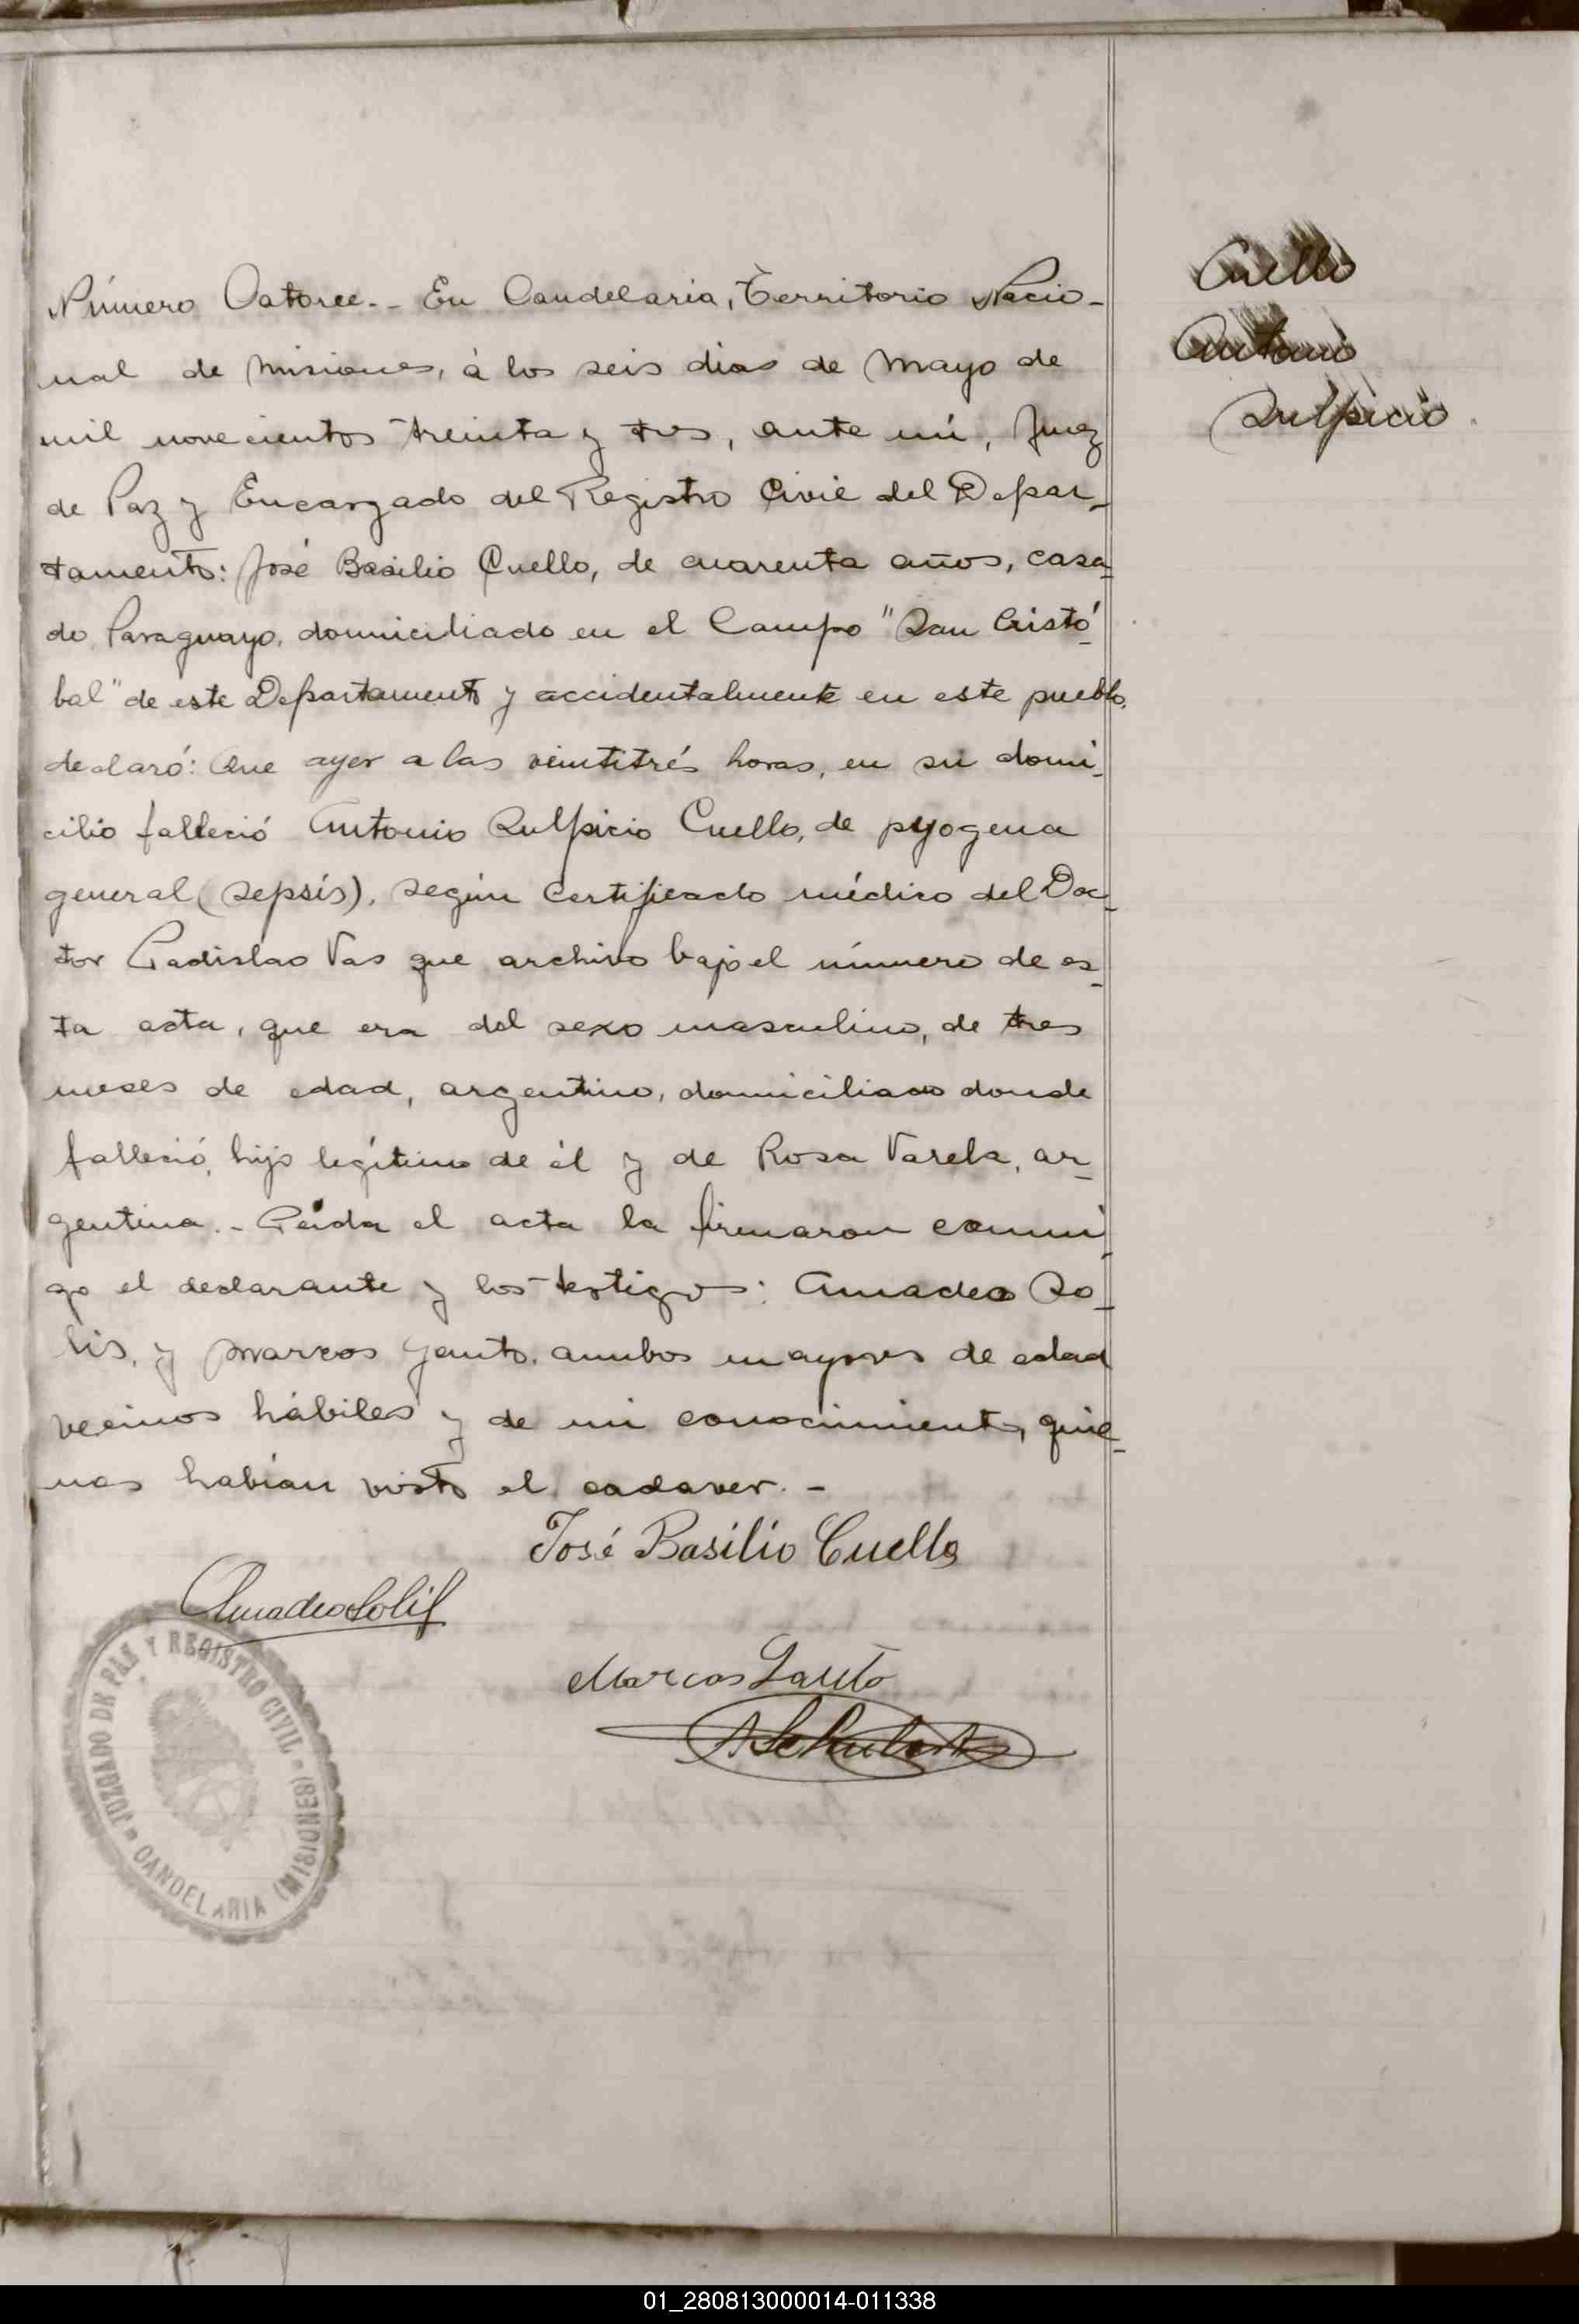 Cuello
Antonio
Sulpicio.
Número Catorce.- En Candelaria, Territorio Nacio-
nal de Misiones, á los seis dias de Mayo de
mil novecientos treinta y tres, ante mí, Juez
de Paz y Encargado del Registro Civil del Depar-
tamento: José Basilio Cuello, de cuarenta años, casa-
do, Paraguayo, domiciliado en el Campo "San Cristó-
bal" de este Departamento y accidentalmente en este pueblo,
declaró: Que ayer a las veintitrés horas, en su domi-
cilio falleció Antonio Sulpicio Cuello, de pyogena
general (sepsis), según certificado médico del Doc-
tor Ladislao Vas que archivo bajo el número de es-
ta acta, que era del sexo masculino, de tres
meses de edad, argentino, domiciliado donde
falleció, hijo legítimo de él y de Rosa Varela, ar-
gentina.- Leída el acta la firmaron conmi-
go el declarante y los testigos: Amadeo So-
lis, y Marcos Gauto, ambos mayores de edad
vecinos hábiles y de mi conocimiento, quie-
nes habían visto el cadaver.-
José Basilio Cuello
Amadeo Solis
Marcos Gauto
JUZGADO DE PAZ Y REGISTRO CIVIL - CANDELARIA (MISIONES)
01_280813000014-011338